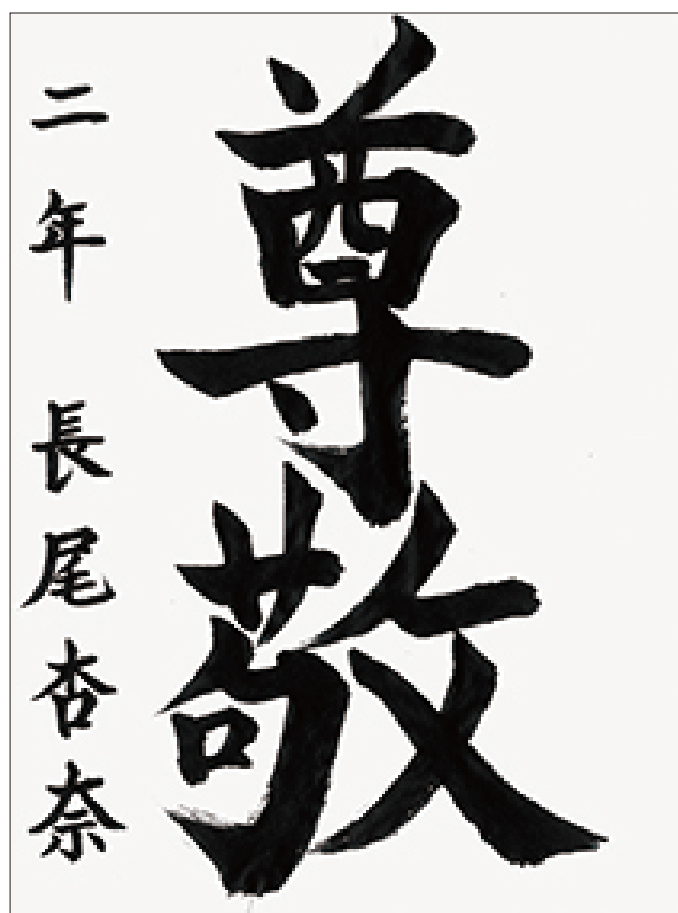 尊敬
二年 長尾杏奈